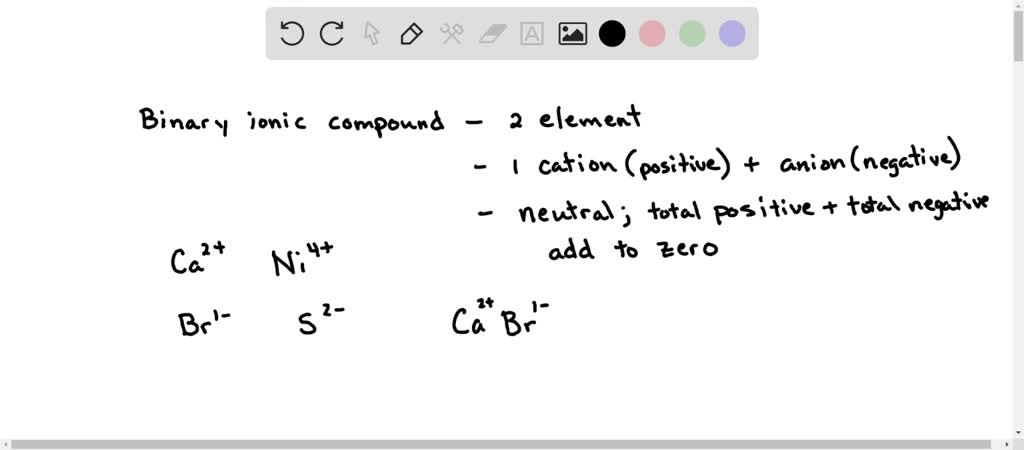 Binary ionic compound - 2 element
- 1 cation (positive) + anion (negative)
- neutral; total positive + total negative
add to zero
Ca²⁺ Ni⁴⁺
Br¹⁻ S²⁻ Ca²⁺ Br¹⁻